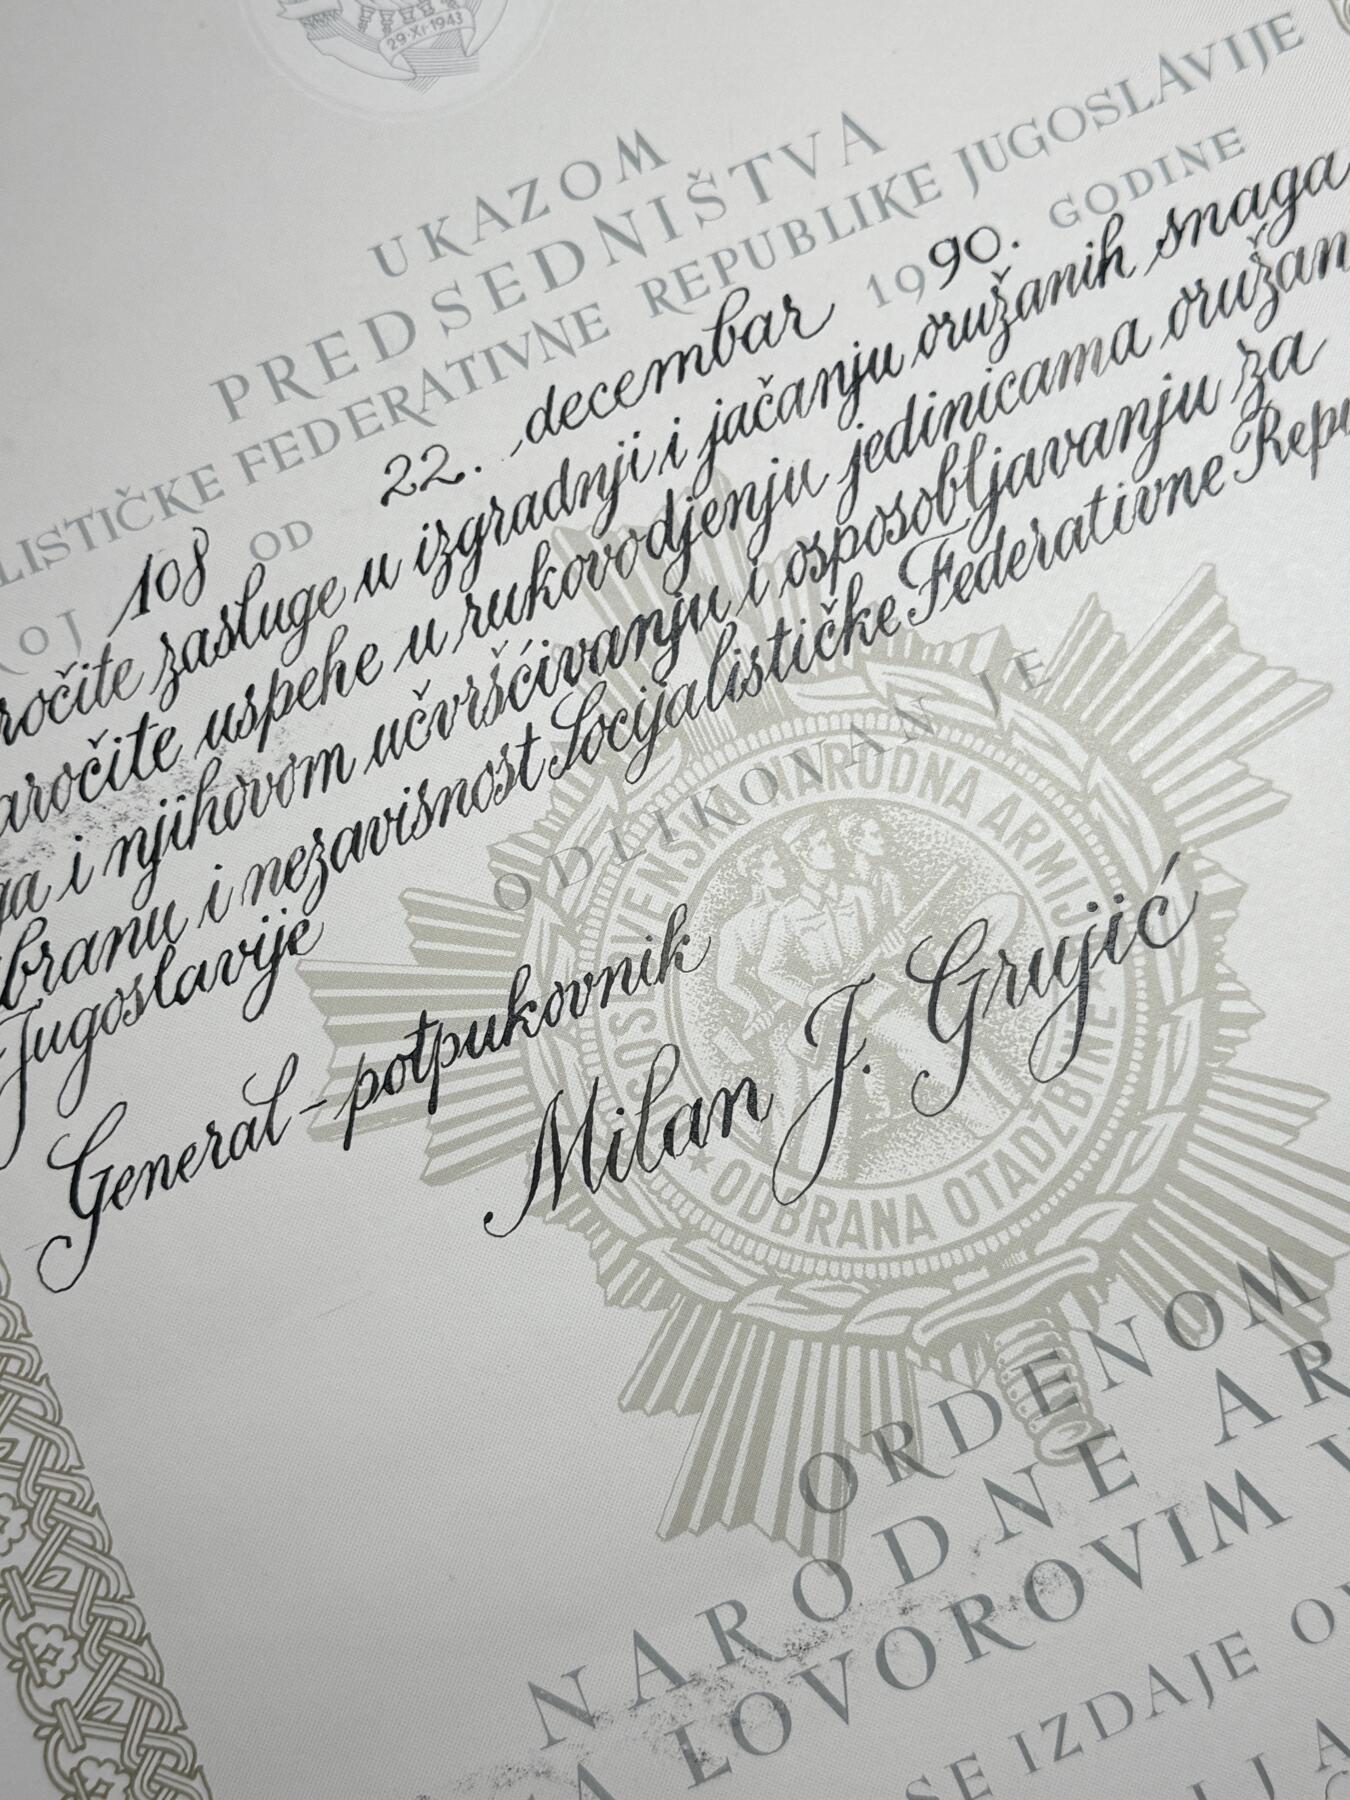 29·XI·1943
UKAZOM
PREDSEDNIŠTVA
LISTIČKE FEDERATIVNE REPUBLIKE JUGOSLAVIJE
OJ 108 OD 22. decembar 1990. GODINE
ročite zasluge u izgradnji i jačanju oružanih snaga
aročite uspehe u rukovodjenju jedinicama oružan
ga i njihovom učvršćivanju i osposobljavanju za
branu i nezavisnost Socijalističke Federativne Repu
Jugoslavije
ODLIKOVAN JE
General-potpukovnik
Milan J. Grujić
OSLOVENSKA NARODNA ARMIJA
ODBRANA OTADŽBINE
ORDENOM
NARODNE AR
A LOVOROVIM V
SE IZDAJE OV